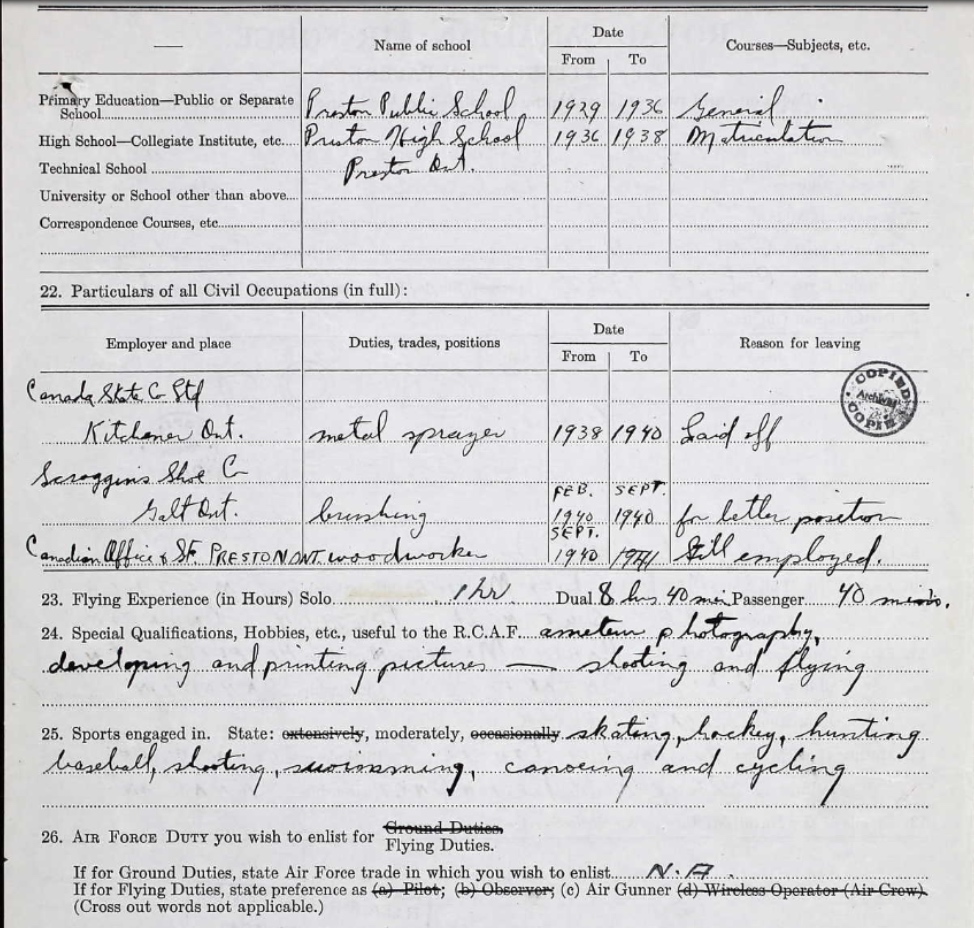 Name of school Date Courses—Subjects, etc.
From To
Primary Education—Public or Separate
School Preston Public School 1929 1936 General
High School—Collegiate Institute, etc. Preston High School 1936 1938 Matriculation
Technical School Preston Ont.
University or School other than above
Correspondence Courses, etc
22. Particulars of all Civil Occupations (in full):
Employer and place Duties, trades, positions Date Reason for leaving
From To
COPIED
COPIED
Canada
Kitchener Ont. metal sprayer 1938 1940 Laid off
Scroggins Shoe Co FEB. SEPT.
Galt Ont. brushing 1940 1940 for better position
SEPT.
Canadian Office & PRESTON ONT. woodworker 1940 1941 Still employed.
23. Flying Experience (in Hours) Solo 1 hr Dual 8 hrs 40 min Passenger 40 mins.
24. Special Qualifications, Hobbies, etc., useful to the R.C.A.F. ameteur photography,
developing and printing pictures — shooting and flying
25. Sports engaged in. State: extensively, moderately, occasionally skating, hockey, hunting
baseball, shooting, swimming, canoeing and cycling
26. AIR FORCE DUTY you wish to enlist for Ground Duties.
Flying Duties.
If for Ground Duties, state Air Force trade in which you wish to enlist N.A.
If for Flying Duties, state preference as (a) Pilot; (b) Observer; (c) Air Gunner (d) Wireless Operator (Air Crew).
(Cross out words not applicable.)